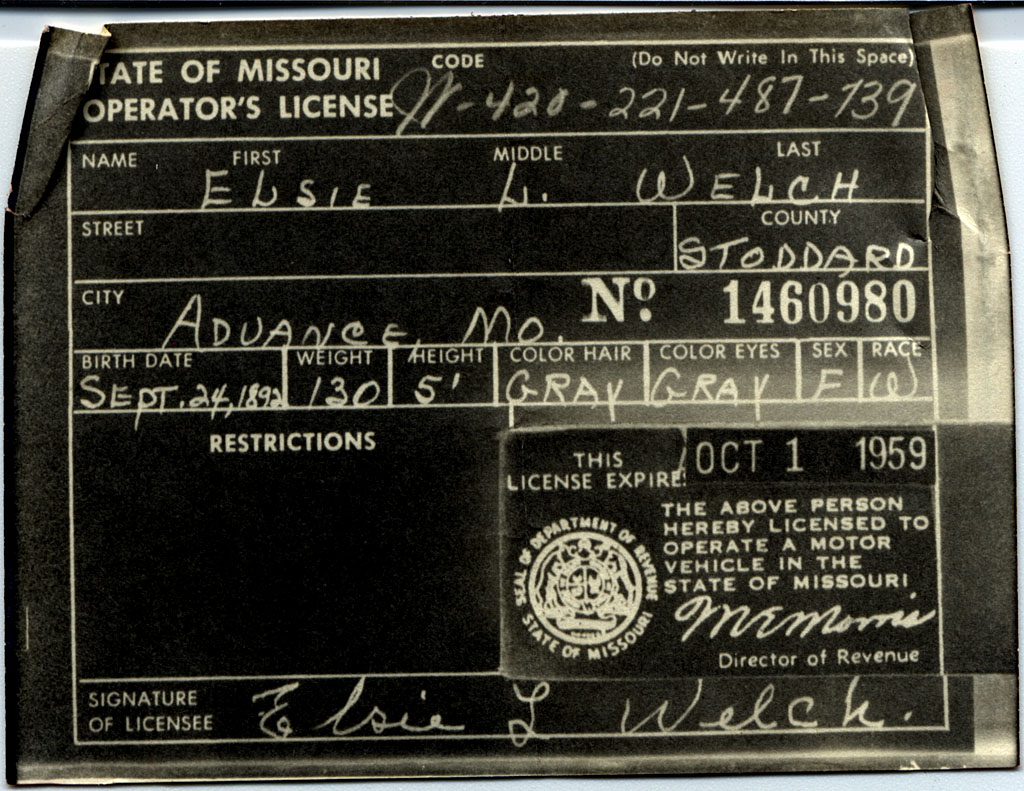 STATE OF MISSOURI CODE (Do Not Write In This Space)
OPERATOR'S LICENSE W-420-221-487-739
NAME FIRST MIDDLE LAST
ELSIE L. WELCH
STREET COUNTY
STODDARD
CITY No. 1460980
ADVANCE, MO.
BIRTH DATE WEIGHT HEIGHT COLOR HAIR COLOR EYES SEX RACE
SEPT. 24, 1892 130 5' GRAY GRAY F W
RESTRICTIONS
THIS LICENSE EXPIRES OCT 1 1959
THE ABOVE PERSON
HEREBY LICENSED TO
OPERATE A MOTOR
VEHICLE IN THE
STATE OF MISSOURI
SEAL OF DEPARTMENT OF REVENUE STATE OF MISSOURI
M E Morris
Director of Revenue
SIGNATURE
OF LICENSEE Elsie L Welch.